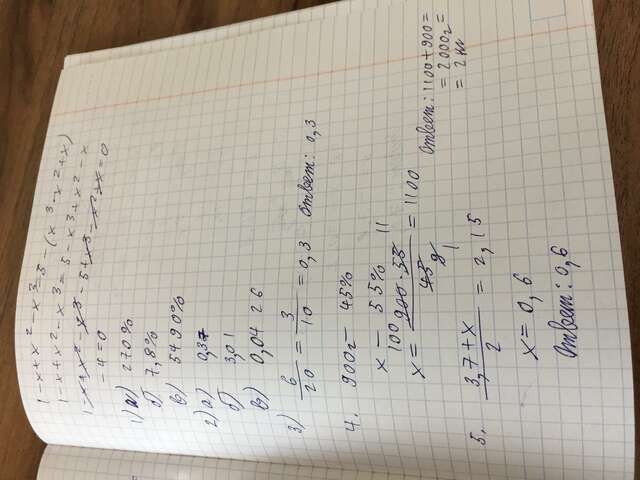 1-x+x²-x³=5-(x³-x²+x)
1-x+x²-x³=5-x³+x²-x
1-x+x²-x³-5+x³-x²+x=0
-4=0
1) а) 270%
б) 7,8%
в) 5490%
2) а) 0,37
б) 3,01
в) 0,0426
3) 6/20 = 3/10 = 0,3 Ответ: 0,3
4. 900г - 45%
x - 55%
x = 900·55/45 = 1100
100 11
9 1
Ответ: 1100+900=
= 2000г =
= 2кг
5. 3,7+x/2 = 2,15
x = 0,6
Ответ: 0,6